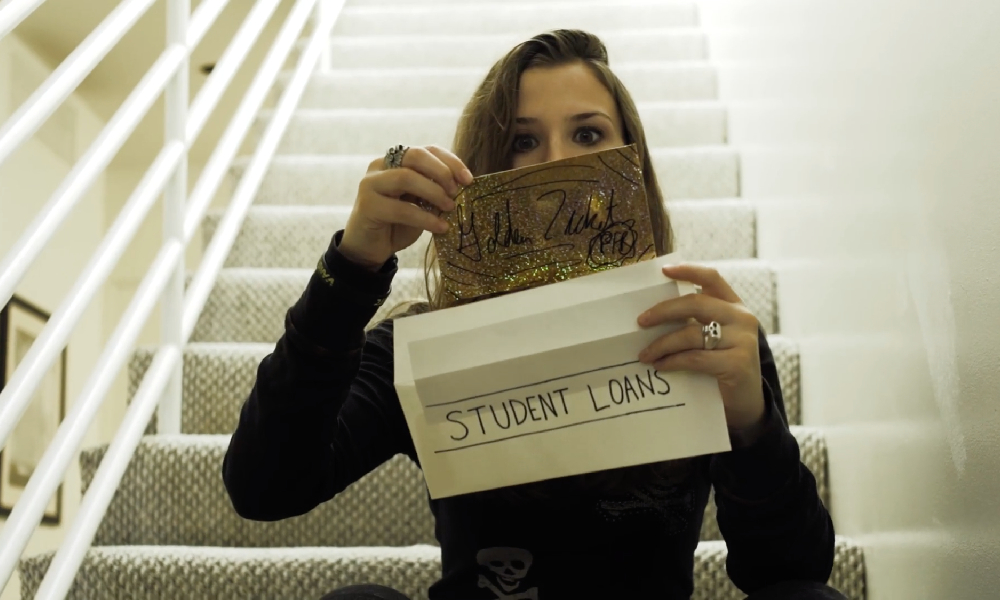 Golden Ticket
STUDENT LOANS